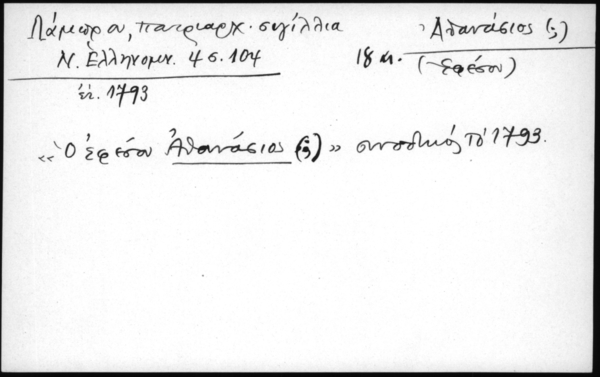 Λάμπρου, πατριαρχ. σιγίλλια
Ν. Ελληνομν. 4 σ. 104
ἐν. 1793
18 αι.
Ἀθανάσιος (;)
(Ἐφέσου)
«Ὁ ἐφέσου Ἀθανάσιος (;)» συνοδικός τῷ 1793.